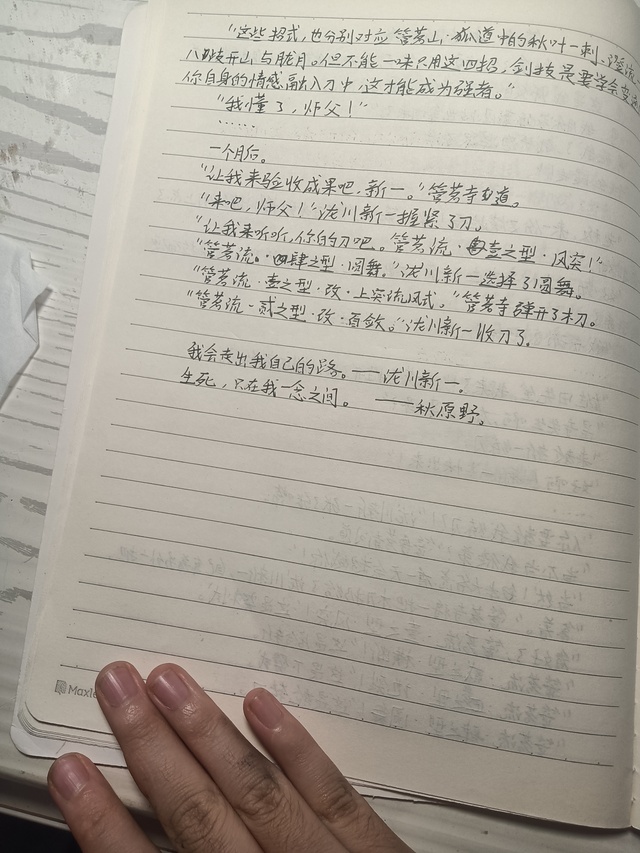 “这些招式，也分别对应管茗山·狐道中的秋叶一刺、
八岐开山与胧月。但不能一味只用这四招，剑技是要学会变
你自身的情感融入刀中，这才能成为强者。”
“我懂了，师父！”
……
一个月后。
“让我来验收成果吧，新一。”管茗寺道。
“来吧，师父！”泷川新一握紧了刀。
“让我来听听，你的刀吧。管茗流·壹之型·风突！”
“管茗流·肆之型·圆舞。”泷川新一选择了圆舞。
“管茗流·壹之型·改·上突流风式。”管茗寺弹开了木刀。
“管茗流·贰之型·改·百敛。”泷川新一收刀了。
我会走出我自己的路。——泷川新一。
生死，只在我一念之间。——秋原野。
Maxle